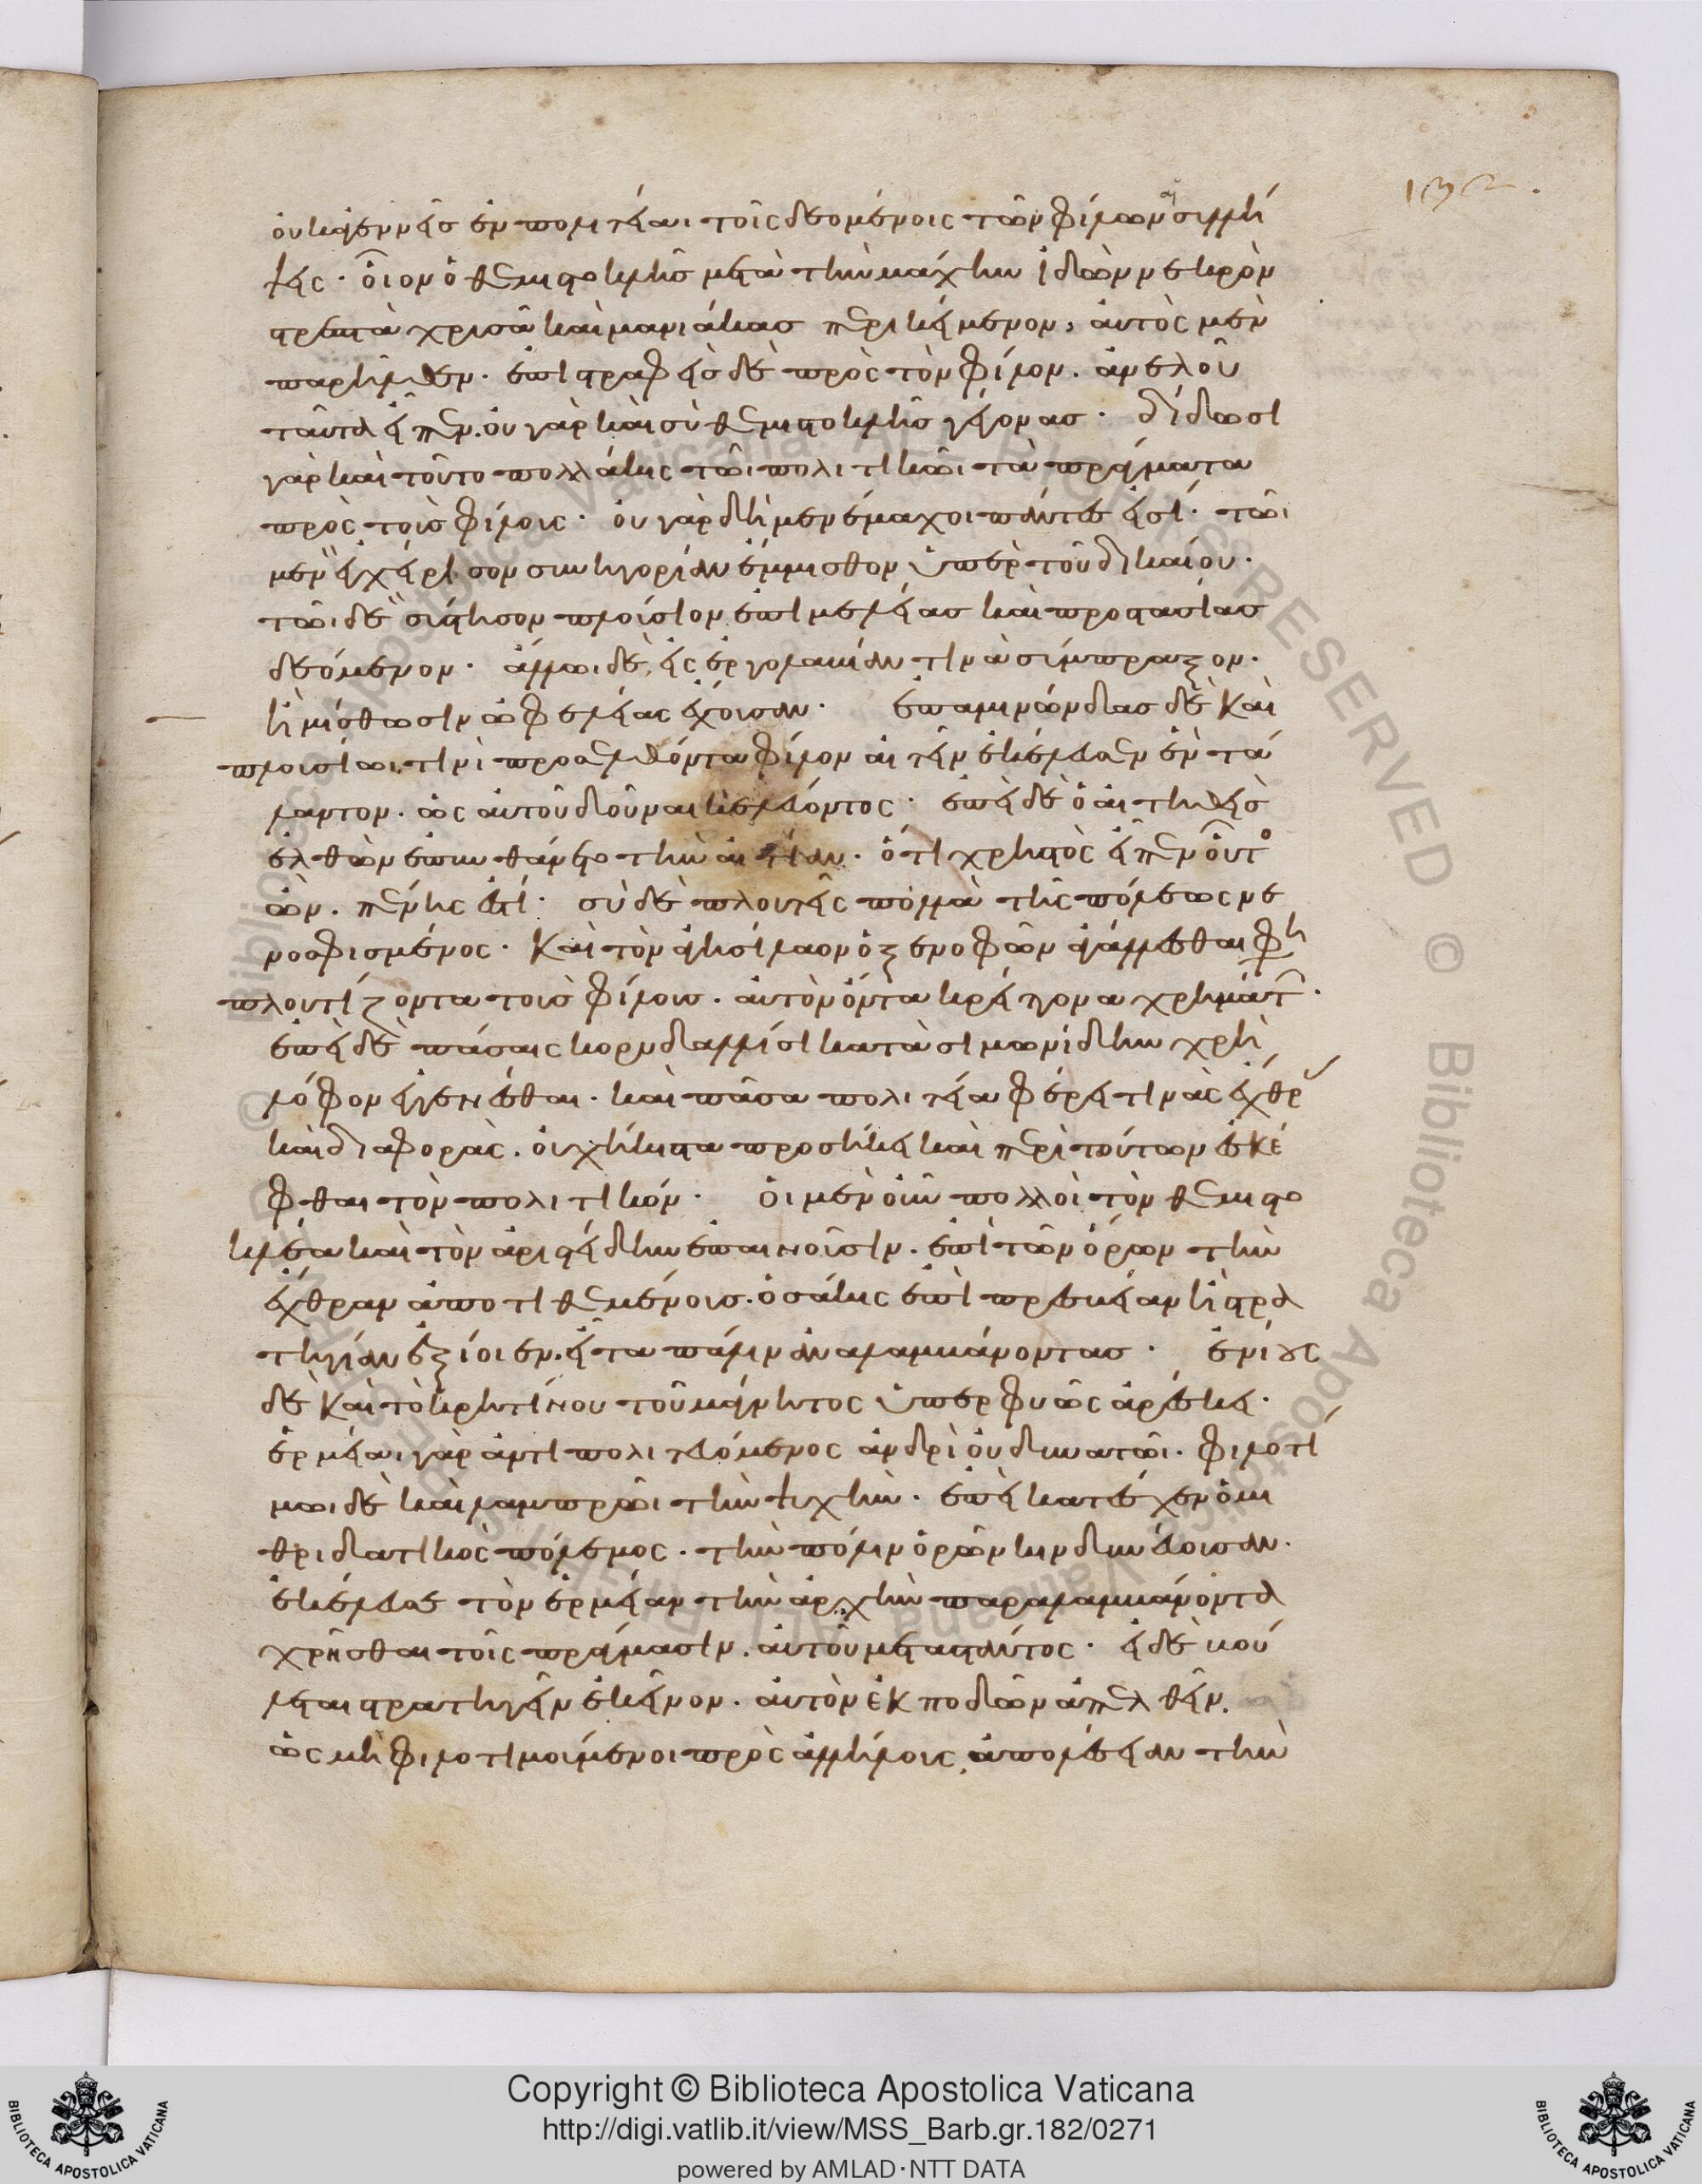 οὐκ ἀγεννεῖς ἐν πολιτείαι τοῖς δεομένοις τῶν φίλων αἱ συλλή
ψεις· οἷον ὁ θεμιστοκλῆς μετὰ τὴν μάχην ἰδὼν νεκρὸν
στρεπτὰ χρυσᾶ καὶ μανιάκας περικείμενον, αὐτὸς μὲν
παρῆλθεν. ἐπιστραφεὶς δὲ πρὸς τὸν φίλον. ἀνελοῦ
ταῦτα εἶπεν. οὐ γὰρ καὶ σὺ θεμιστοκλῆς γέγονας· δίδωσι
γὰρ καὶ τοῦτο πολλάκις τῶι πολιτικῶι τὰ πράγματα
πρὸς τοὺς φίλους· οὐ γὰρ δὴ μενέμαχοι πάντες εἰσί· τῶι
μὲν ἐγχείρισον συνηγορίαν ἔμμισθον ὑπὲρ τοῦ δικαίου·
τῶι δὲ σύστησον πλούσιον ἐπιμελείας καὶ προστασίας
δεόμενον· ἄλλωι δὲ, εἰς ἐργολαβίαν τινὰ σύμπραξον·
ἢ μίσθωσιν ὠφελείας ἔχουσαν· ἐπαμινώνδας δὲ καὶ
πλουσίωι τινὶ προσελθόντα φίλον αἰτεῖν ἐκέλευσεν ἐν τά
λαντον. ὡς αὐτοῦ δοῦναι κελεύοντος· ἐπεὶ δὲ ὁ αἰτηθεὶς
ἐλθὼν ἐπυνθάνετο τὴν αἰτίαν. ὅτι χρηστὸς εἶπεν οὗτος
ὢν. πένης ἐστί· σὺ δὲ πλουτεῖς πολλὰ τῆς πόλεως νε
νοσφισμένος· καὶ τὸν ἀγησίλαον ὁ ξενοφῶν ἀγάλλεσθαι φη
πλουτίζοντα τοὺς φίλους. αὐτὸν ὄντα κρείττονα χρημάτων·
ἐπεὶ δὲ πάσαις κορυδαλλίσι κατὰ σιμωνίδην χρὴ
λόφον ἐγγενέσθαι. καὶ πᾶσα πολιτεία φέρει τινὰς ἔχθρας
καὶ διαφορὰς. οὐχ ἥκιστα προσήκει καὶ περὶ τούτων ἐσκέ
φθαι τὸν πολιτικόν· οἱ μὲν οὖν πολλοὶ τὸν θεμιστο
κλέα καὶ τὸν ἀριστείδην ἐπαινοῦσιν. ἐπὶ τῶν ὅρων τὴν
ἔχθραν ἀποτιθεμένους. ὁσάκις ἐπὶ πρεσβείαν ἢ στρα
τηγίαν ἐξίοιεν. εἶτα πάλιν ἀναλαμβάνοντας· ἐνίοις
δὲ καὶ τὸ κρητίνου τοῦ μάγνητος ὑπερφυῶς ἀρέσκει·
ἑρμείαι γὰρ ἀντιπολιτευόμενος ἀνδρὶ οὐ δυνατῶι. φιλοτί
μωι δὲ καὶ λαμπρῶι τὴν ψυχὴν. ἐπεὶ κατέσχεν ὁ μι
θριδατικὸς πόλεμος. τὴν πόλιν ὁρῶν κινδυνεύουσαν.
ἐκέλευσε τὸν ἑρμείαν τὴν ἀρχὴν παραλαμβάνοντα
χρῆσθαι τοῖς πράγμασιν. αὐτοῦ μεταστάντος· εἰ δὲ βού
λεται στρατηγεῖν ἐκεῖνον. αὐτὸν ἐκ ποδῶν ἀπελθεῖν.
ὡς μὴ φιλοτιμούμενοι πρὸς ἀλλήλους, ἀπολέσειαν τὴν
192.
Copyright © Biblioteca Apostolica Vaticana
http://digi.vatlib.it/view/MSS_Barb.gr.182/0271
powered by AMLAD·NTT DATA
BIBLIOTECA APOSTOLICA VATICANA
BIBLIOTECA APOSTOLICA VATICANA